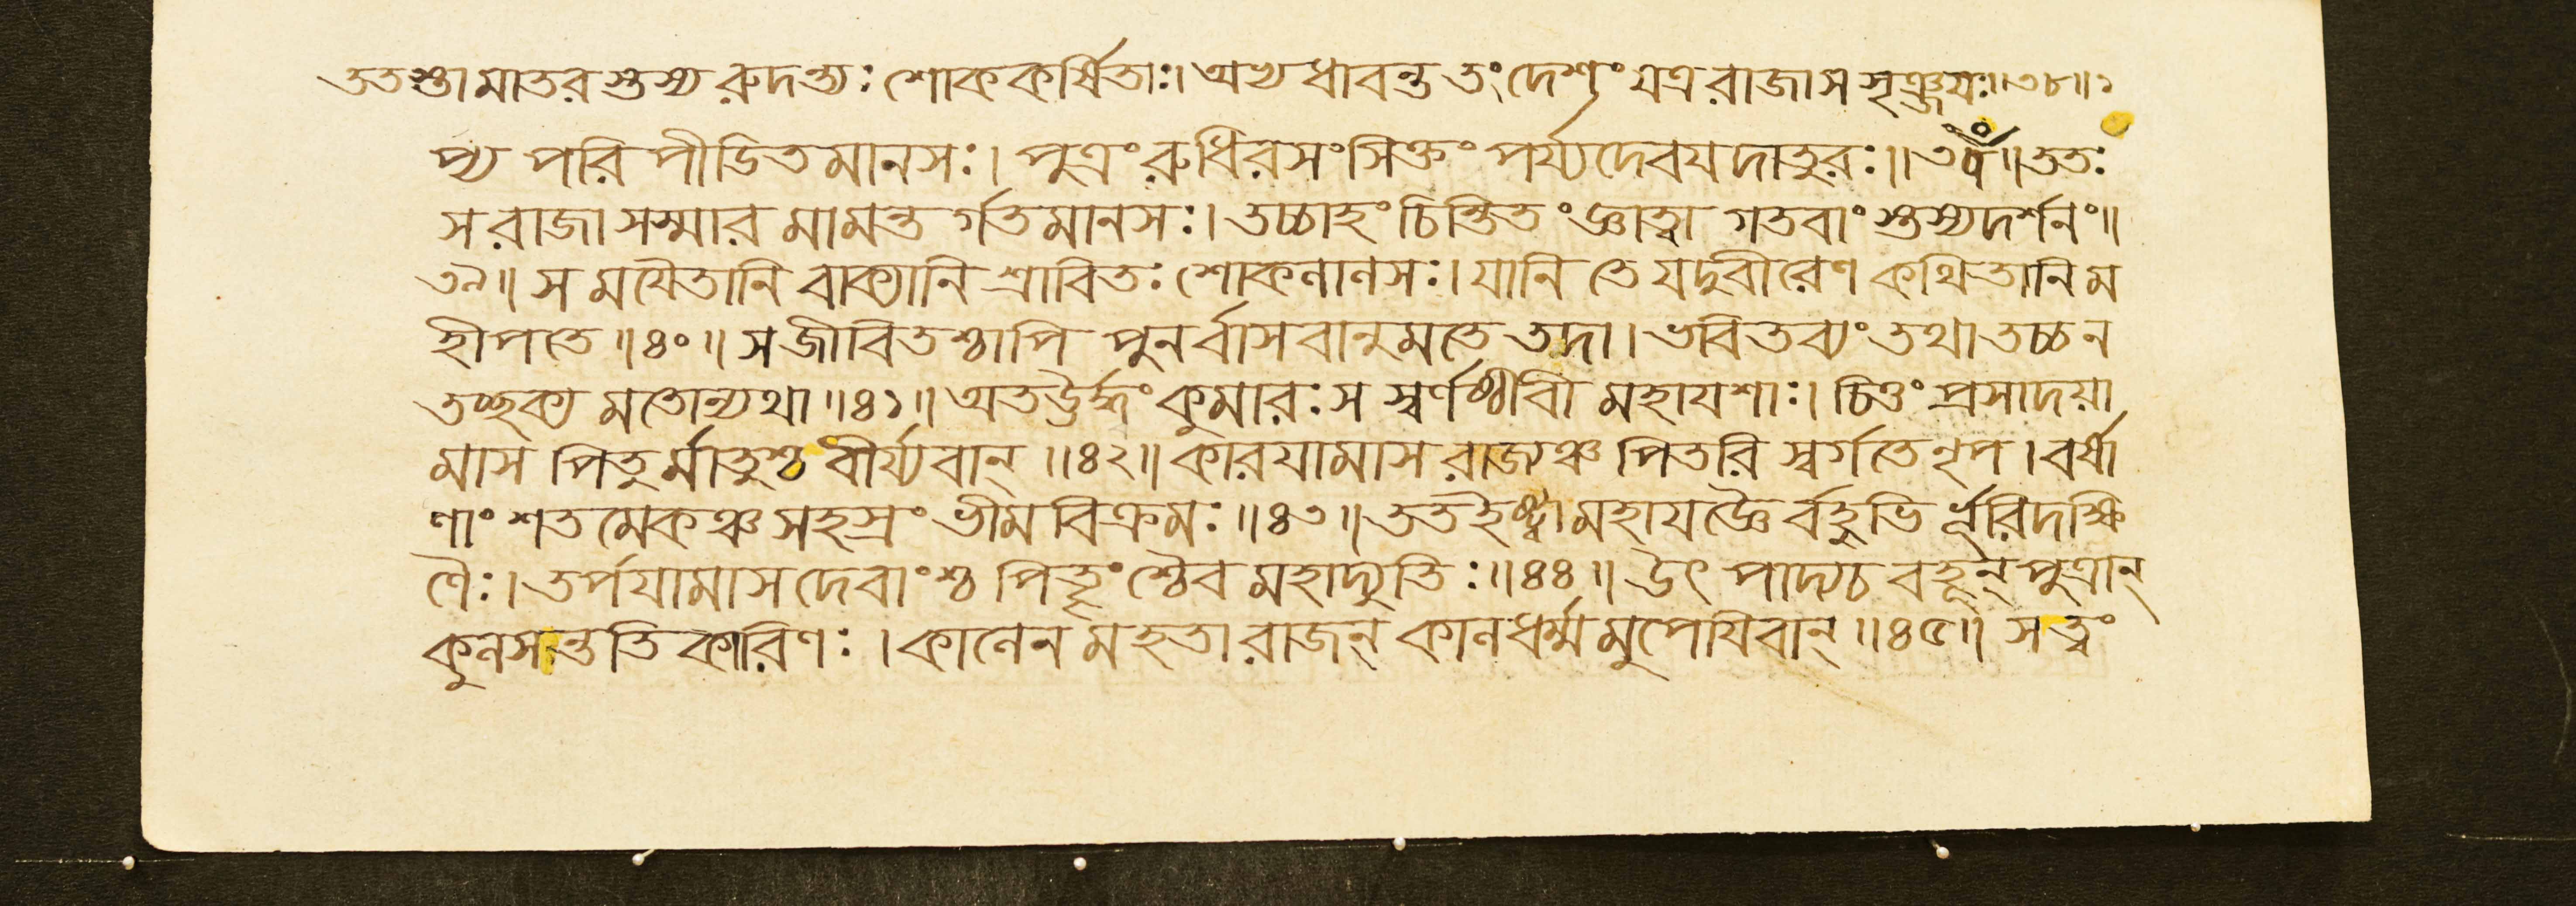 ততস্তা মাতরস্তস্য রুদত্যঃ শোককর্ষিতাঃ। অভ্যধাবন্ত তং দেশং যত্র রাজা স সৃঞ্জয়ঃ॥৩৮॥১
প্য পরিপীডিতমানসঃ। পুত্রং রুধিরসংসিক্তং পর্য্যদেবযদাতুরঃ॥ ৩৭॥ ততঃ
স রাজা সস্মার মামন্তর্গতমানসঃ। তচ্চাহং চিন্তিতং জ্ঞাত্বা গতবাংস্তস্যদর্শনং॥
৩৯॥ স মযৈতানি বাক্যানি শ্রাবিতঃ শোকলালসঃ। যানি তে যদুবীরেণ কথিতানি ম
হীপতে॥৪০॥ স জীবিতশ্চাপি পুনর্বাসবানুমতে তদা। ভবিতব্যং তথা তচ্চ ন
তচ্ছক্য মতোন্যথা॥৪১॥ অতঊর্দ্ধং কুমারঃ স স্বর্ণষ্ঠীবী মহাযশাঃ। চিত্তং প্রসাদয়া
মাস পিতুর্মাতুশ্চ বীর্য্যবান্॥৪২॥ কারযামাস রাজ্যঞ্চ পিতরি স্বর্গতে নৃপ। বর্ষা
ণাং শতমেকঞ্চ সহস্রং ভীমবিক্রমঃ॥৪৩॥ ততইষ্ট্বা মহাযজ্ঞৈর্বহুভির্ভূরিদক্ষি
ণৈঃ। তর্পযামাস দেবাংশ্চ পিতৄংশ্চৈব মহাদ্যুতিঃ॥৪৪॥ উৎপাদ্যচ বহূন্ পুত্রান্
কুলসন্ততিকারিণঃ। কালেন মহতা রাজন্ কালধর্ম্মমুপেযিবান্॥৪৫॥ স ত্বং